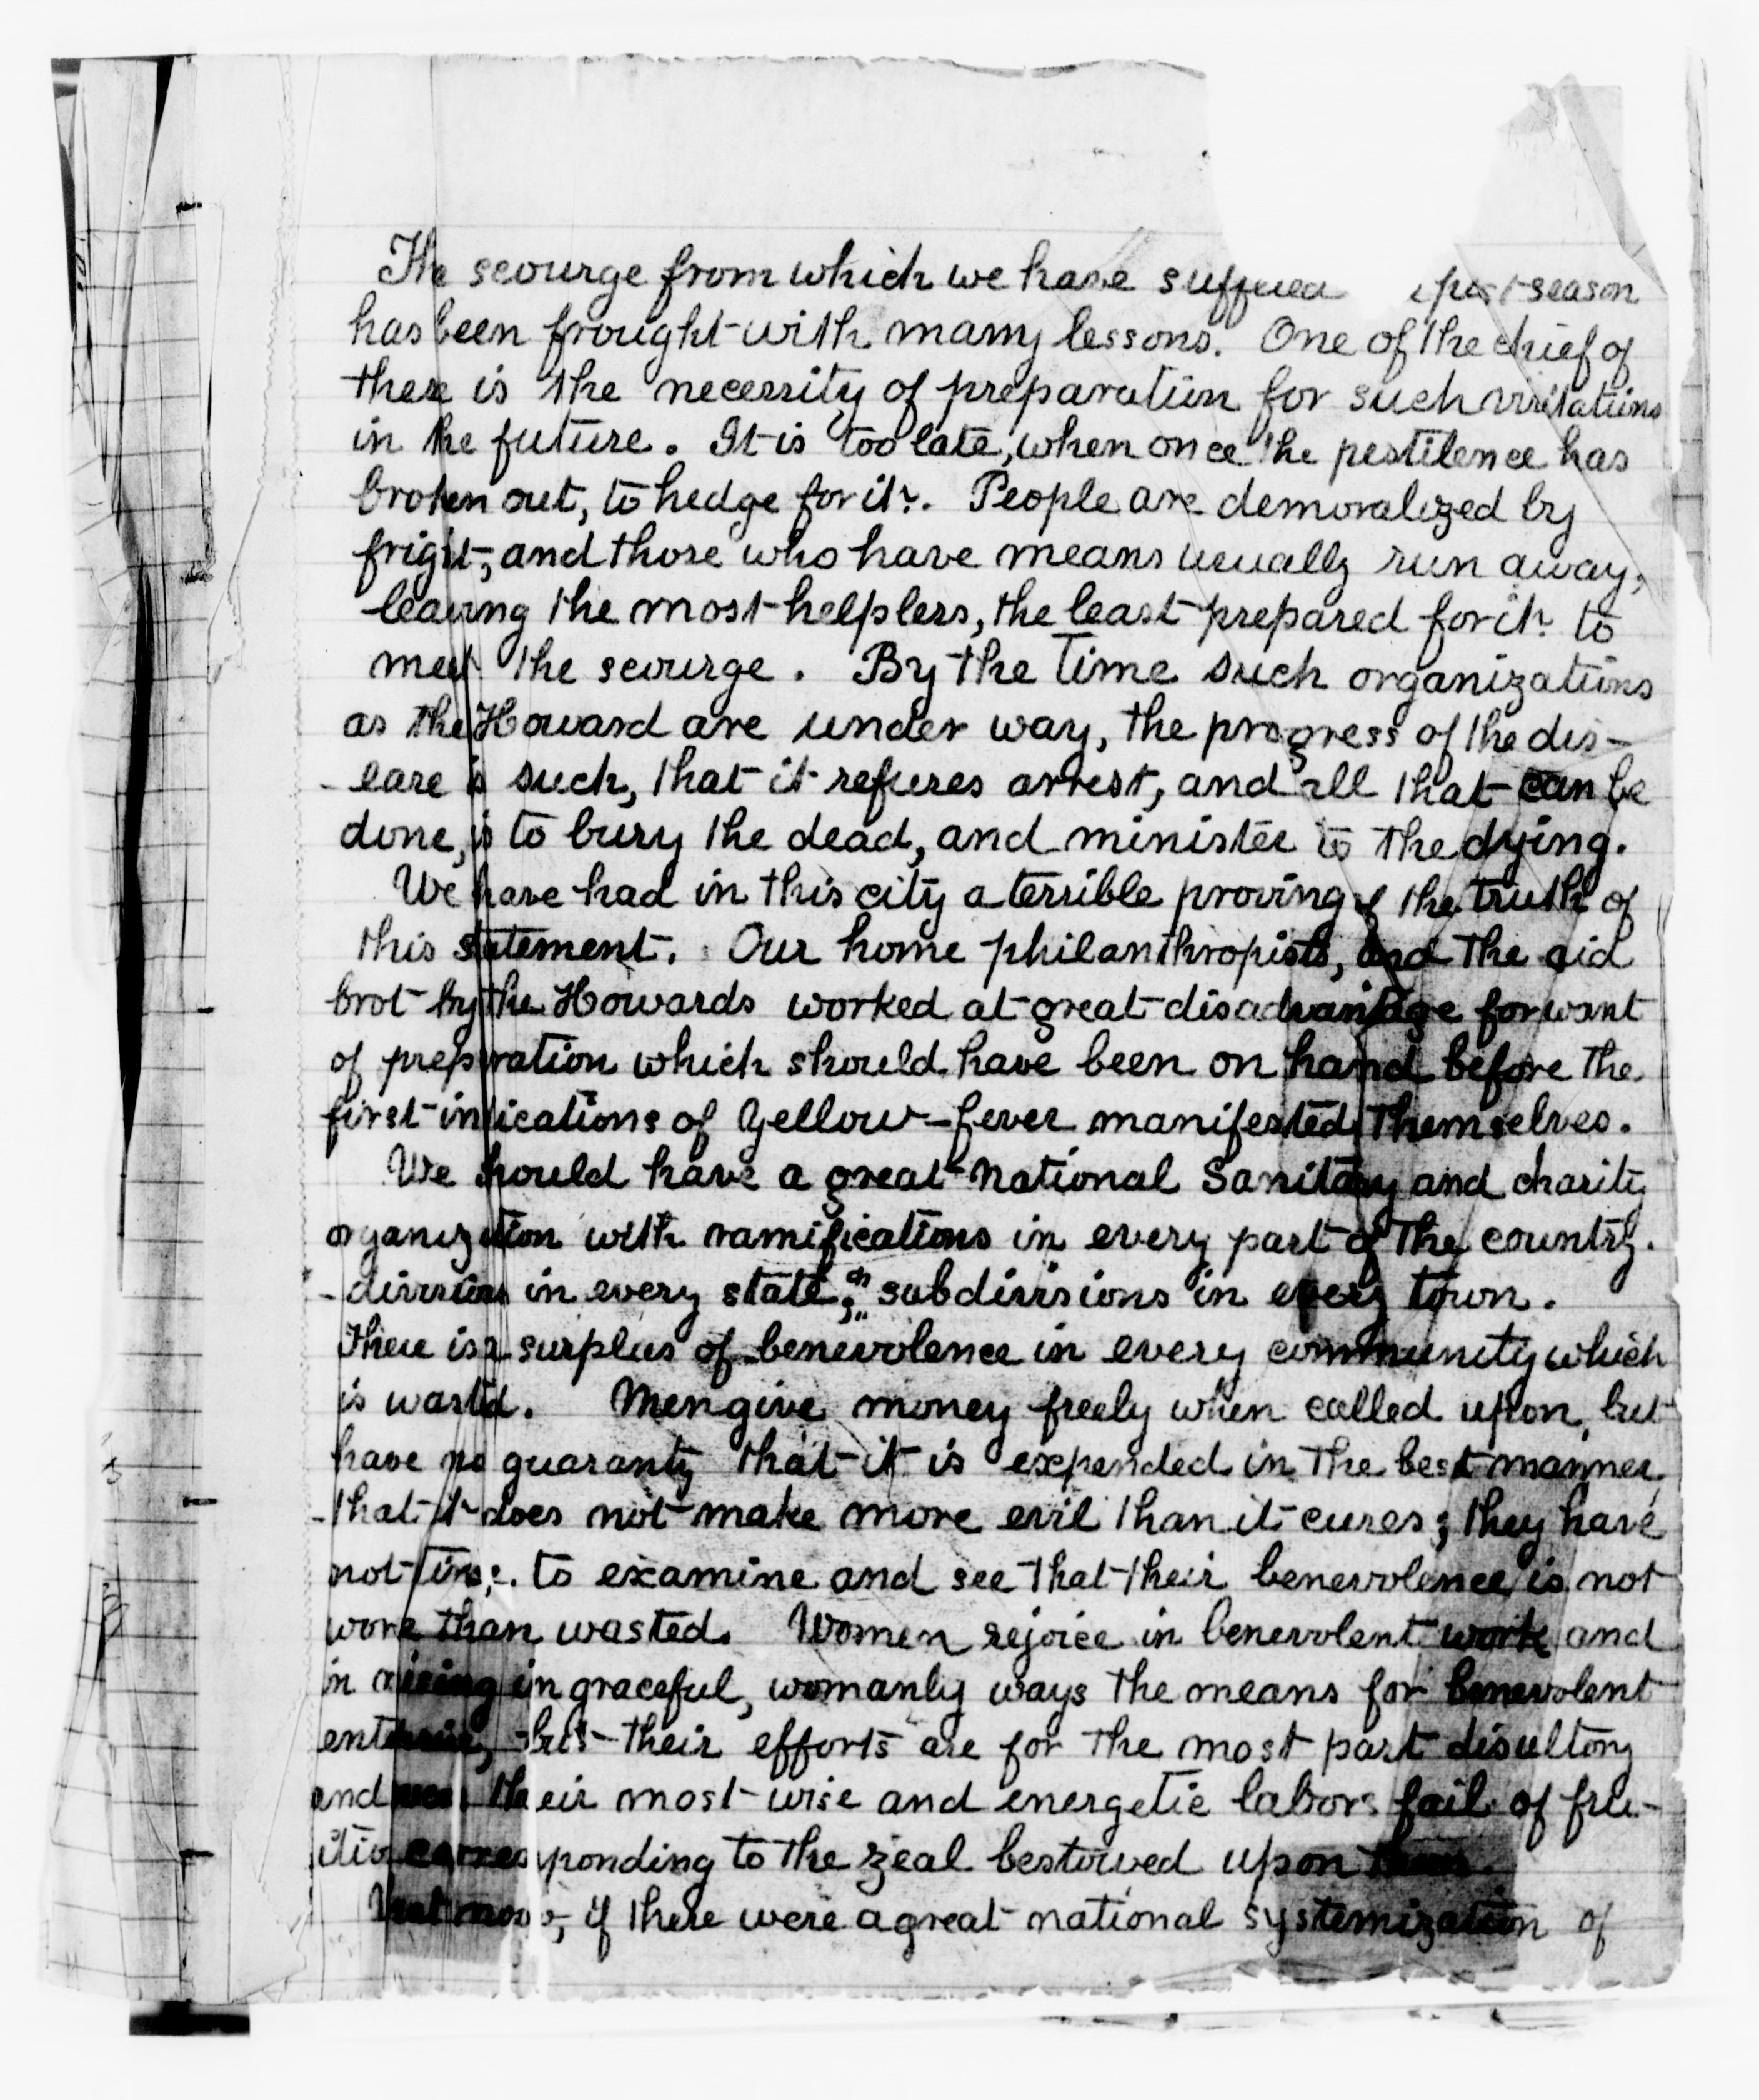 The scourge from which we have suffered past season
has been frought with many lessons. One of the chief of
these is the necessity of preparation for such visitations
in the future. It is too late, when once the pestilence has
broken out, to hedge for it. People are demoralized by
fright, and those who have means usually run away,
leaving the most helpless, the least prepared for it to
meet the scourge. By the time such organizations
as the Howard are under way, the progress of the dis-
-ease is such, that it refuses arrest, and all that can be
done, is to bury the dead, and minister to the dying.
We have had in this city a terrible proving of the truth of
this statement. Our home philanthropists, and the aid
brot by the Howards worked at great disadvantage for want
of preparation which should have been on hand before the
first indications of yellow-fever manifested themselves.
We should have a great national Sanitary and charity
organization with ramifications in every part of the country.
-divisions in every state, subdivisions in every town.
There is a surplus of benevolence in every community which
is wasted. Men give money freely when called upon, but
have no guaranty that it is expended in the best manner,
-that it does not make more evil than it cures; they have
not time to examine and see that their benevolence is not
worse than wasted. Women rejoice in benevolent work and
in raising in graceful, womanly ways the means for benevolent
but their efforts are for the most part disultory
and their most wise and energetic labors fail of fru-
ition corresponding to the zeal bestowed upon them.
if there were a great national systemization of